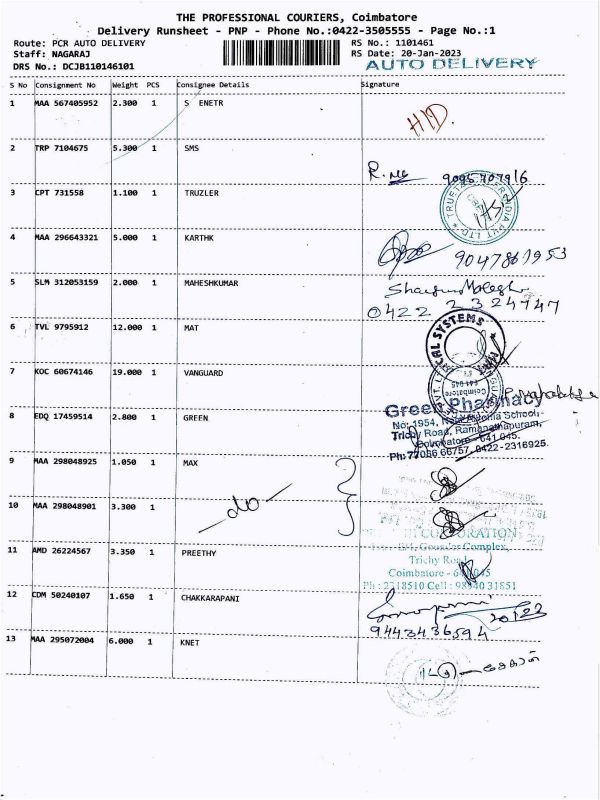 THE PROFESSIONAL COURIERS, Coimbatore
Delivery Runsheet - PNP - Phone No.:0422-3505555 - Page No.:1
Route: PCR AUTO DELIVERY RS No.: 1101461
Staff: NAGARAJ RS Date: 20-Jan-2023
DRS No.: DCJB110146101 AUTO DELIVERY
S No Consignment No Weight PCS Consignee Details Signature
1 MAA 567405952 2.300 1 S ENETR
2 TRP 7104675 5.300 1 SMS
9095707916
3 CPT 731558 1.100 1 TRUZLER
4 MAA 296643321 5.000 1 KARTHK
9047861953
5 SLM 312053159 2.000 1 MAHESHKUMAR
0422 2324747
6 TVL 9795912 12.000 1 MAT
SYSTEMS
7 KOC 60674146 19.000 1 VANGUARD
Coimbatore
641 045
Green Pharmacy
8 EDQ 17459514 2.800 1 GREEN
No: 1954, School,
Trichy Road, Ramanathapuram,
Coimbatore - 641 045.
Ph: 77086 66757, 0422-2316925.
9 MAA 298048925 1.050 1 MAX
- do -
10 MAA 298048901 3.300 1
CORPORATION
11 AMD 26224567 3.350 1 PREETHY
Gounder Complex,
Trichy Road
Coimbatore - 641 045
Ph : 2318510 Cell : 98940 31851
12 CDM 50240107 1.650 1 CHAKKARAPANI
9443436594
13 MAA 295072004 6.000 1 KNET